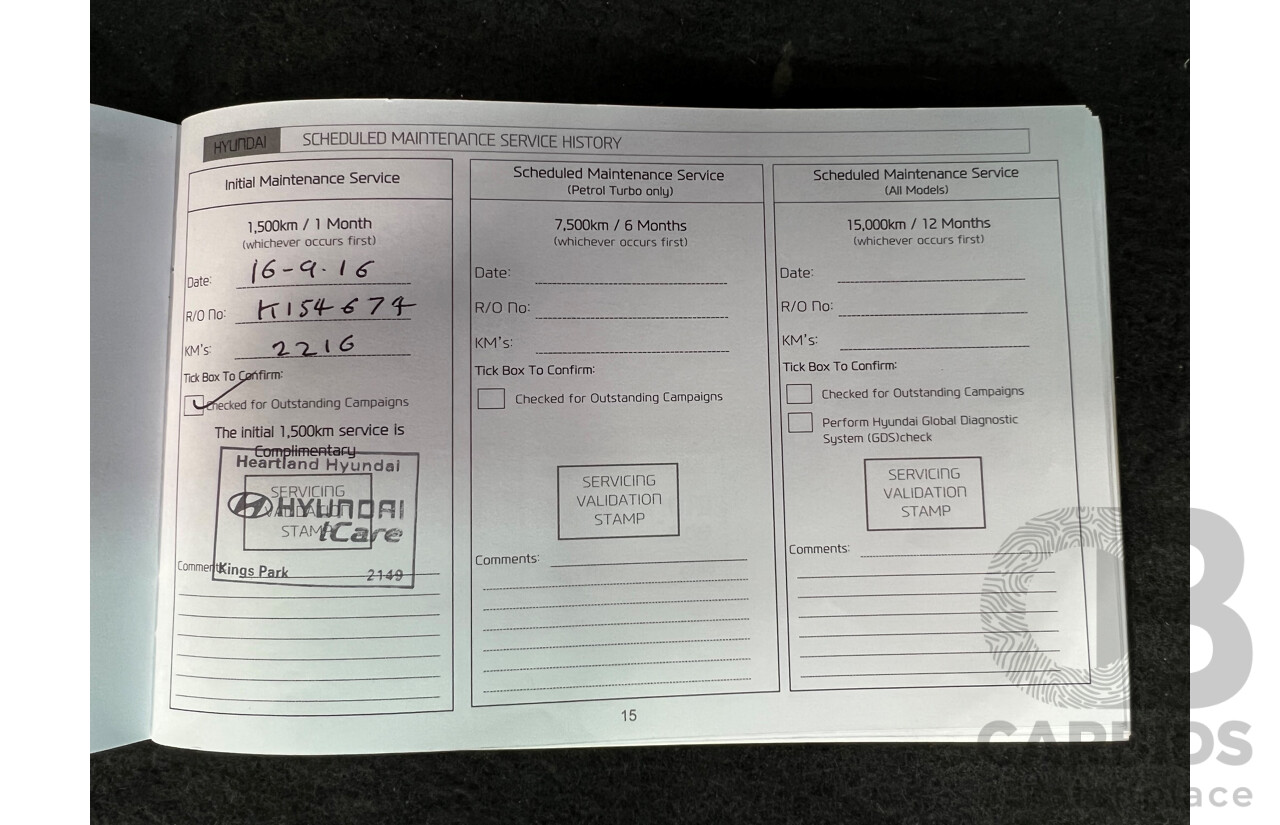 HYUNDAI SCHEDULED MAINTENANCE SERVICE HISTORY
Initial Maintenance Service
1,500km / 1 Month
(whichever occurs first)
Date: 16-9-16
R/O No: K154674
KM's: 2216
Tick Box To Confirm:
Checked for Outstanding Campaigns
The initial 1,500km service is
Complimentary
Heartland Hyundai
SERVICING
VALIDATION
STAMP
HYUNDAI
iCare
Comments:
Kings Park 2149
Scheduled Maintenance Service
(Petrol Turbo only)
7,500km / 6 Months
(whichever occurs first)
Date:
R/O No:
KM's:
Tick Box To Confirm:
Checked for Outstanding Campaigns
SERVICING
VALIDATION
STAMP
Comments:
Scheduled Maintenance Service
(All Models)
15,000km / 12 Months
(whichever occurs first)
Date:
R/O No:
KM's:
Tick Box To Confirm:
Checked for Outstanding Campaigns
Perform Hyundai Global Diagnostic
System (GDS)check
SERVICING
VALIDATION
STAMP
Comments:
15